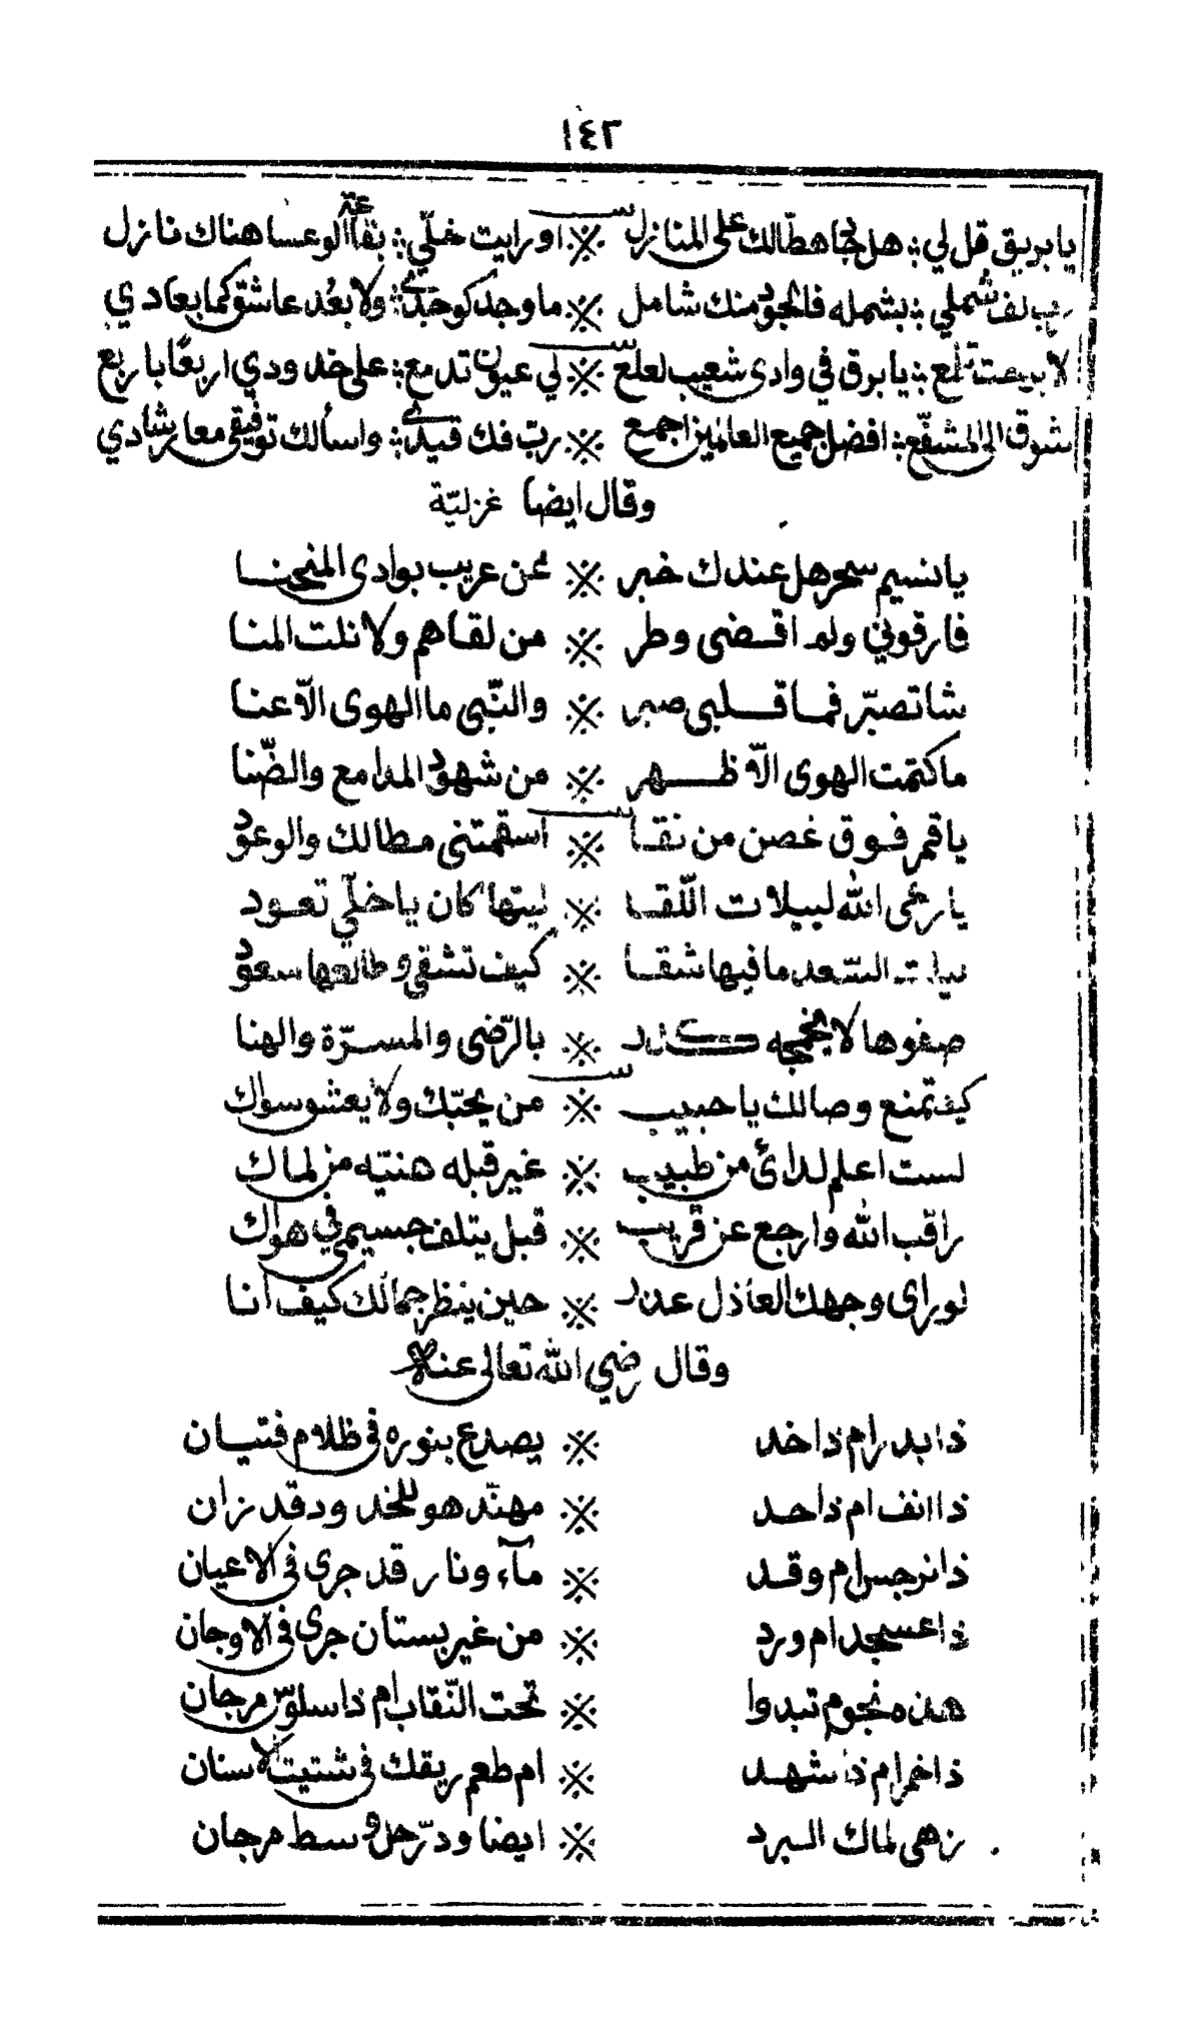 ١٤٢
يا بريق قل لي ؞ هل جا هطّالك على المنازل ※ او رايت خلّي ؞ بقاً الوعسا هناك نازل
شملي ؞ بشمله فالجود منك شامل ※ ما وجد كوجدي ؞ ولا بعُد عاشق كما بعادي
تلمع ؞ يا برق في وادى شعيب لعلع ※ لي عيون تدمع ؞ على خدودي اربعًا باربع
شوق الى المشفّع ؞ افضل جميع العالمين اجمع ※ ربّ فك قيدي ؞ واسألك توفيقى معا رشادي
وقال ايضا غزليّة
يا نسيم سحر هل عندك خبر ※ عن عريب بوادى المنحنا
فارقوني ولم اقضى وطر ※ من لقاهم ولا نلت المنا
شاتصبّر فما قلبى صبر ※ والنّبى ما الهوى الّا عنا
ما كتمت الهوى الّا ظهر ※ من شهود المدامع والضّنا
يا قمر فوق غصن من نقا ※ اسقمتنى مطالك والوعود
يا رعى الله لييلات اللّقا ※ ليتها كان يا خلّي تعود
السّعد ما فيها شقا ※ كيف تشقى وطالعها سعود
صفوها لا يخمجه كدر ※ بالرّضى والمسرّة والهنا
كيف تمنع وصالك يا حبيب ※ من يحبّك ولا يعشو سواك
لست اعلم لدائ من طبيب ※ غير قبله هنتيه من لماك
راقب الله وارجع عن قريب ※ قبل يتلف جسيمى في هواك
لو راى وجهك العاذل عذر ※ حين ينظر جمالك كيف انا
وقال رضي الله تعالى عنه
ذا بدر ام ذا خد ※ يصدع بنوره فى ظلام فتيان
ذا انف ام ذا حد ※ مهنّد هو للخد ود قد زان
ذا نرجس ام وقد ※ مآء ونار قد جرى فى الاعيان
ذا عسجد ام ورد ※ من غير بستان جرى فى الاوجان
هذه نجوم تبدوا ※ تحت النّقاب ام ذا سلوس مرجان
ذا خمر ام ذا شهد ※ ام طعم ريقك فى شتيت الاسنان
زهى لماك البرد ※ ايضا ودرّ حل وسط مرجان